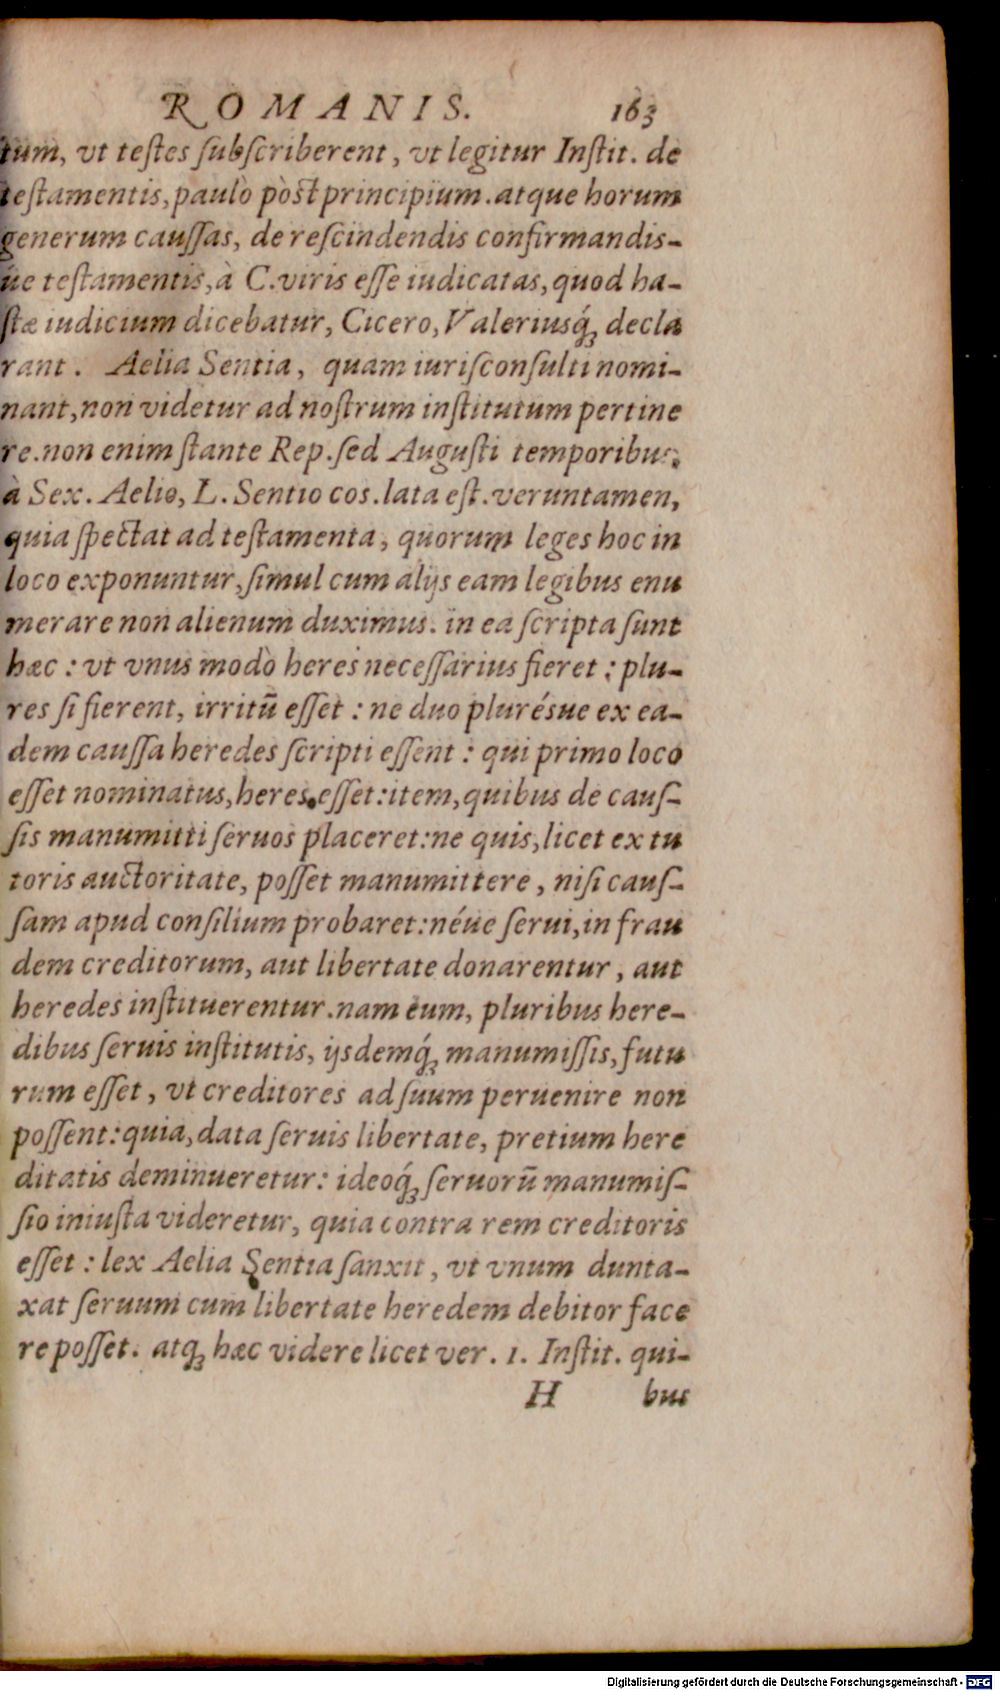 ROMANIS. 163
tum, vt testes subscriberent, vt legitur Instit. de
testamentis, paulò pòst principium. atque horum
generum caussas, de rescindendis confirmandis-
úe testamentis, à C. viris esse iudicatas, quod ha-
stæ iudicium dicebatur, Cicero, Valeriusq́; decla
rant. Aelia Sentia, quam iurisconsulti nomi-
nant, non videtur ad nostrum institutum pertine
re. non enim stante Rep. sed Augusti temporibus,
à Sex. Aelio, L. Sentio cos. lata est. veruntamen,
quia spectat ad testamenta, quorum leges hoc in
loco exponuntur, simul cum alijs eam legibus enu
merare non alienum duximus. in ea scripta sunt
hæc: vt vnus modò heres necessarius fieret: plu-
res si fierent, irritū esset: ne duo plurésue ex ea-
dem caussa heredes scripti essent: qui primo loco
esset nominatus, heres esset: item, quibus de caus-
sis manumitti seruos placeret: ne quis, licet ex tu
toris auctoritate, posset manumittere, nisi caus-
sam apud consilium probaret: néue serui, in frau
dem creditorum, aut libertate donarentur, aut
heredes instituerentur. nam eum, pluribus here-
dibus seruis institutis, ijsdemq́; manumissis, futu
rum esset, vt creditores ad suum peruenire non
possent: quia, data seruis libertate, pretium here
ditatis deminueretur: ideoq́; seruorū manumis-
sio iniusta videretur, quia contra rem creditoris
esset: lex Aelia Sentia sanxit, vt vnum dunta-
xat seruum cum libertate heredem debitor face
re posset. atq; hæc videre licet ver. 1. Instit. qui-
H bus
Digitalisierung gefördert durch die Deutsche Forschungsgemeinschaft - DFG